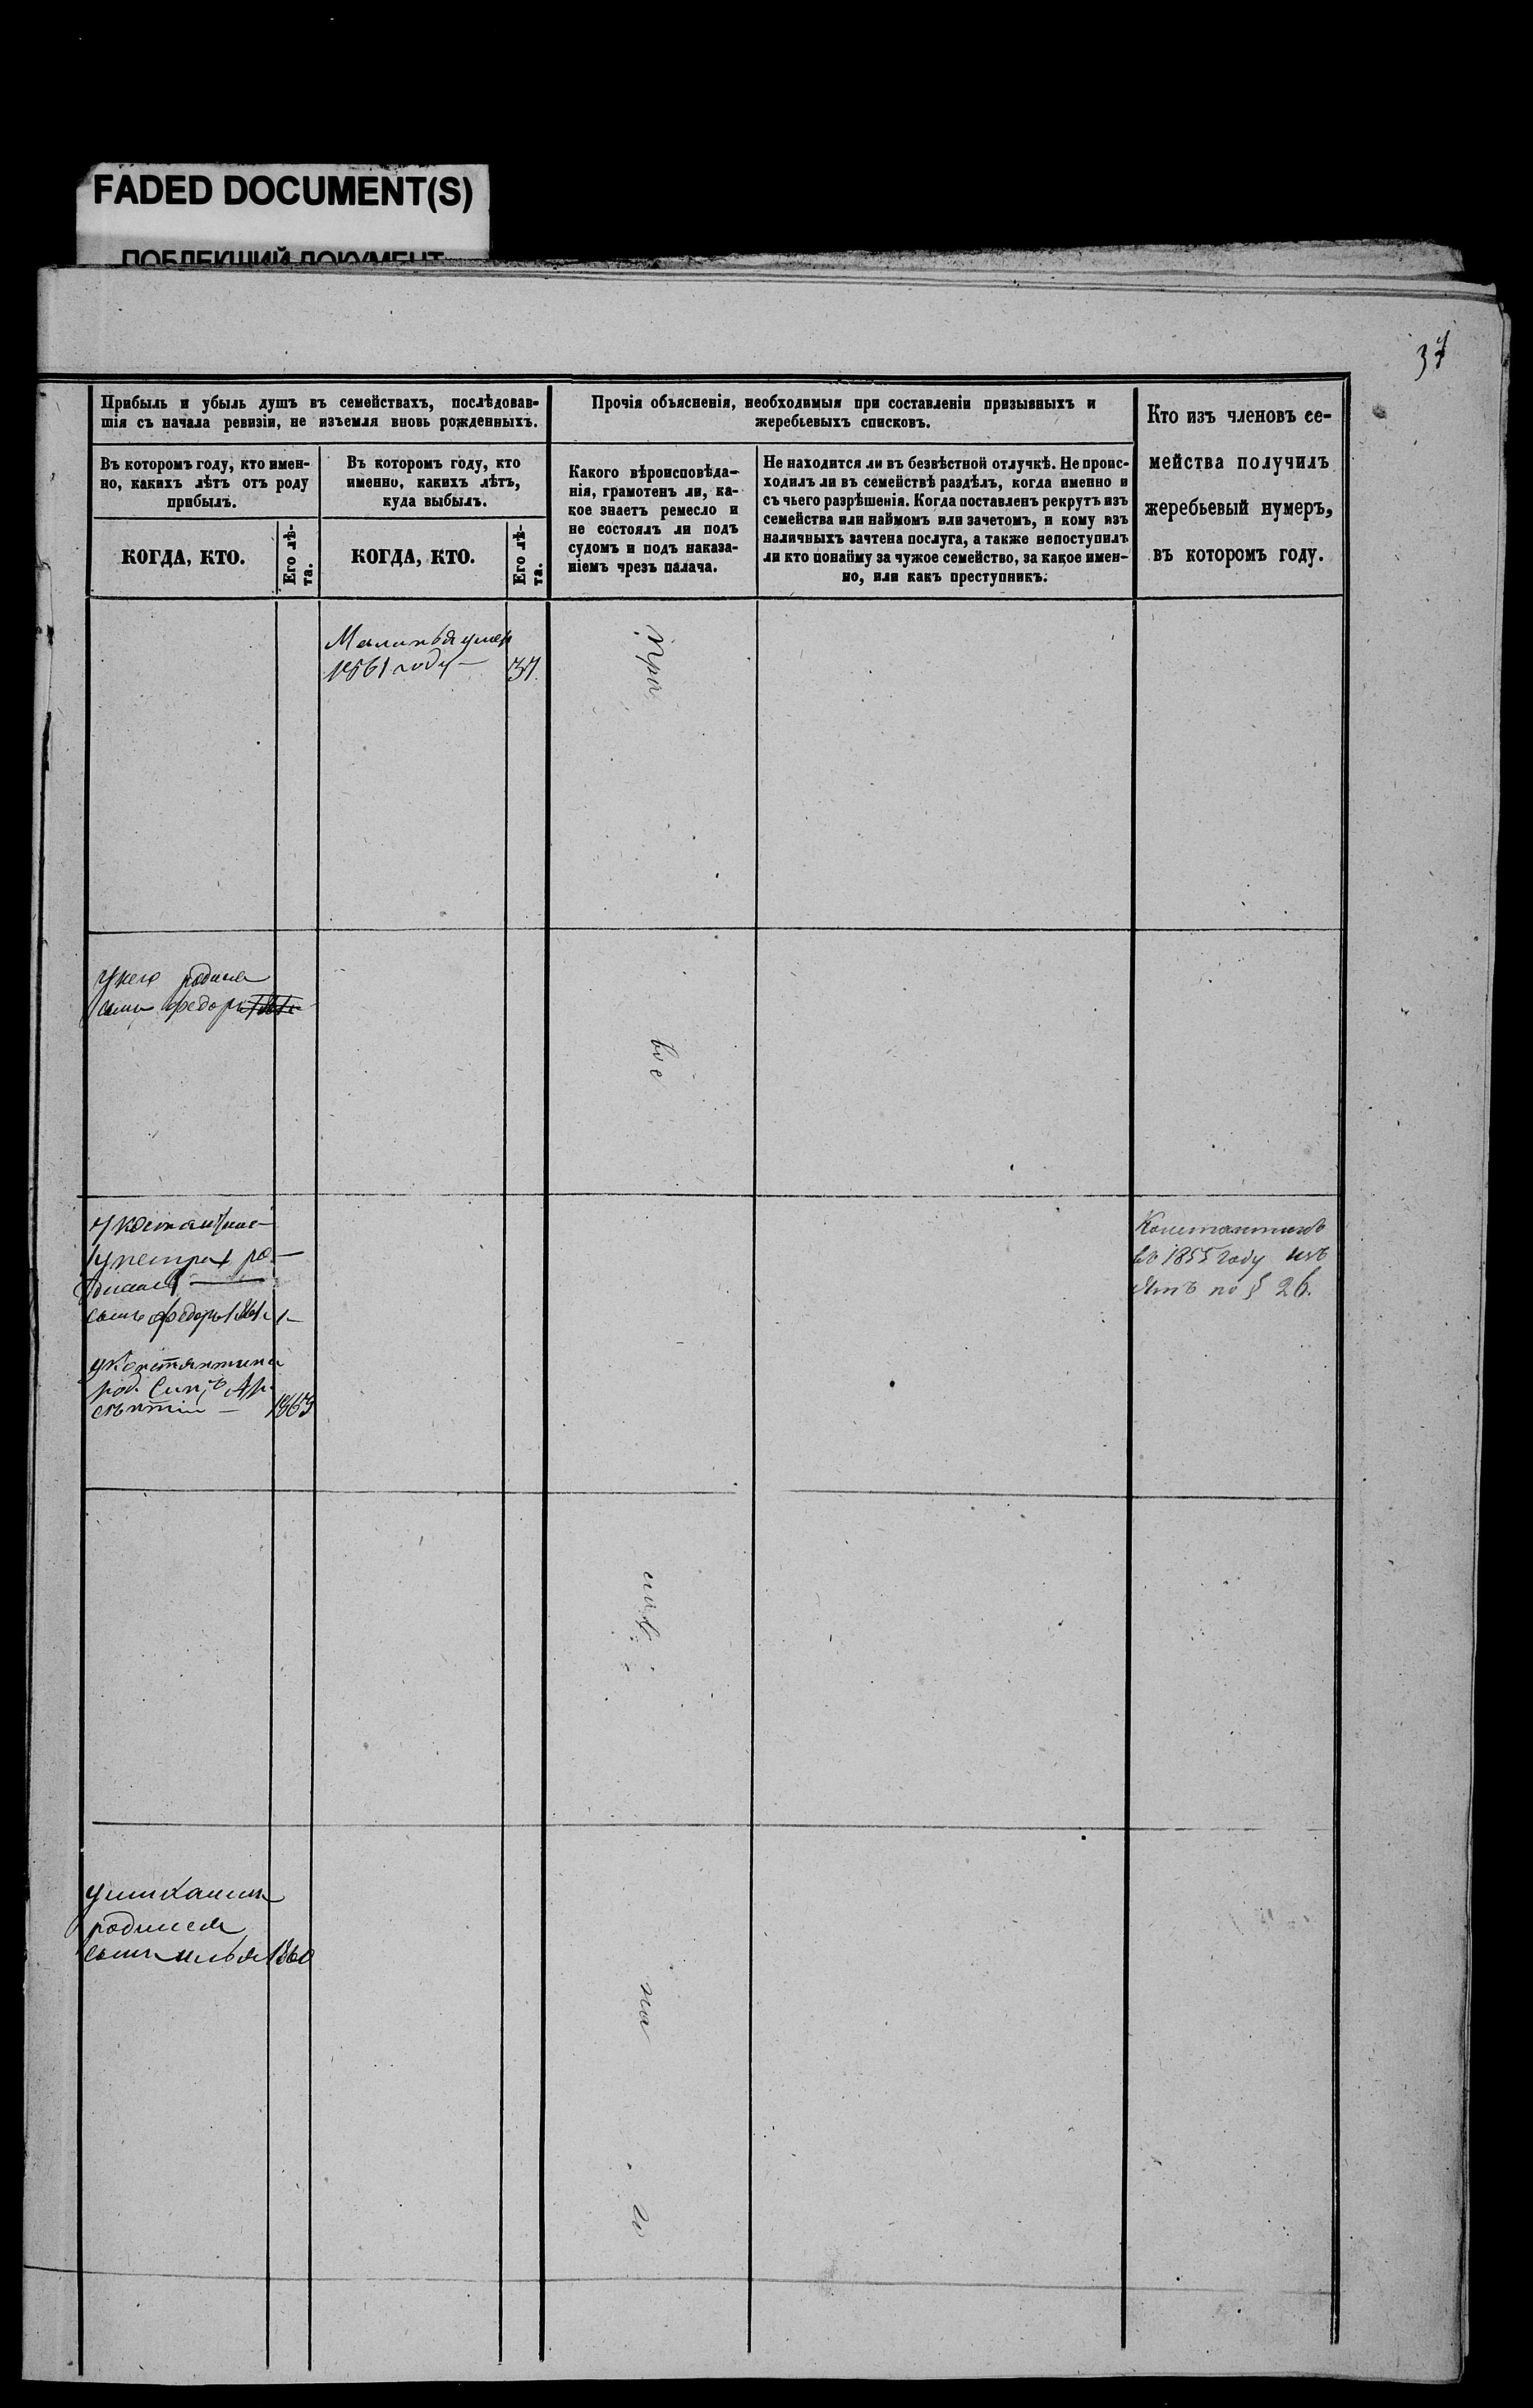 FADED DOCUMENT(S)
ПОБЛЕКШИЙ ДОКУМЕНТ
37
Прибыль и убыль душъ въ семействахъ, послѣдовав-
шія съ начала ревизіи, не изъемля вновь рожденныхъ.
Въ которомъ году, кто имен-
но, какихъ лѣтъ отъ роду
прибылъ.
КОГДА, КТО.
Его лѣ-
та.
Въ которомъ году, кто
именно, какихъ лѣтъ,
куда выбылъ.
КОГДА, КТО.
Его лѣ-
та.
Прочія объясненія, необходимыя при составленіи призывныхъ и
жеребьевыхъ списковъ.
Какого вѣроисповѣда-
нія, грамотенъ ли, ка-
кое знаетъ ремесло и
не состоялъ ли подъ
судомъ и подъ наказа-
ніемъ чрезъ палача.
Не находится ли въ безвѣстной отлучкѣ. Не проис-
ходилъ ли въ семействѣ раздѣлъ, когда именно и
съ чьего разрѣшенія. Когда поставленъ рекрутъ изъ
семейства или наймомъ или зачетомъ, и кому изъ
наличныхъ зачтена послуга, а также непоступилъ
ли кто понайму за чужое семейство, за какое имен-
но, или какъ преступникъ.
Кто изъ членовъ се-
мейства получилъ
жеребьевый нумеръ,
въ которомъ году.
1861 году — 37.
Пра
у него родился
сынъ Федоръ
вос
у Петра ро-
дился
сынъ Федоръ 1861
у Константина
род. Сынъ
1863
Константинъ
въ 1855 году изъ
ятъ по § 26.
лав
родился
сынъ Илья 1860
на
го